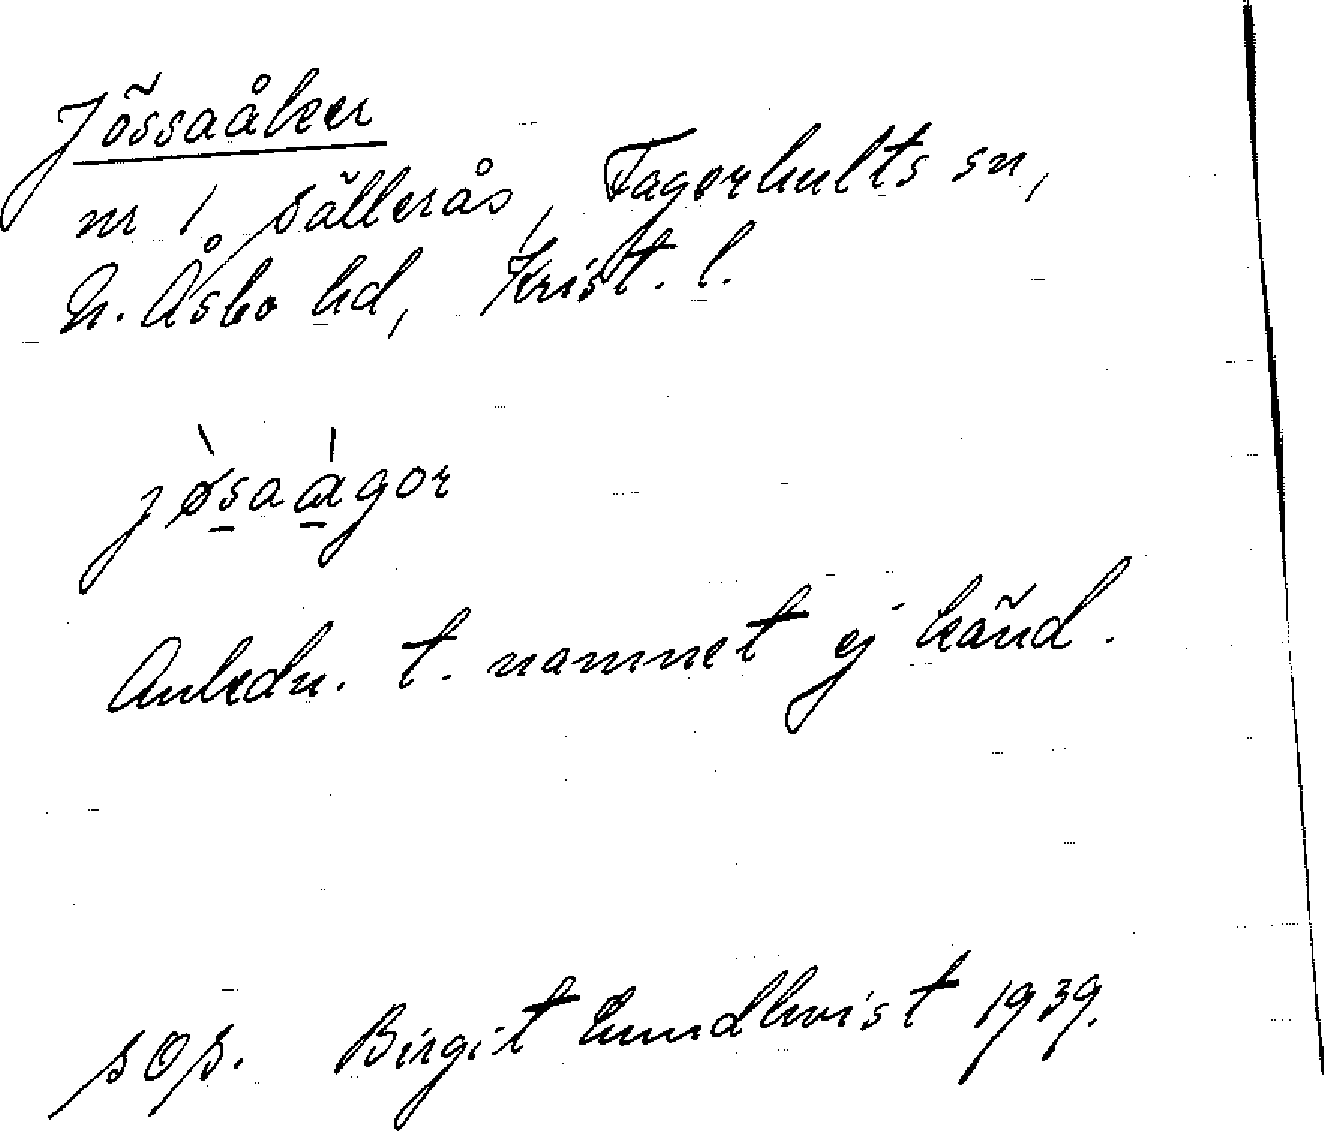 Jössaåker
nr 1 Sällerås, Fagerhults sn,
N. Åsbo hd, Krist. l.
jøsaågor
Anledn. t. namnet ej känd.
SOS. Birgit Lundkvist 1939.